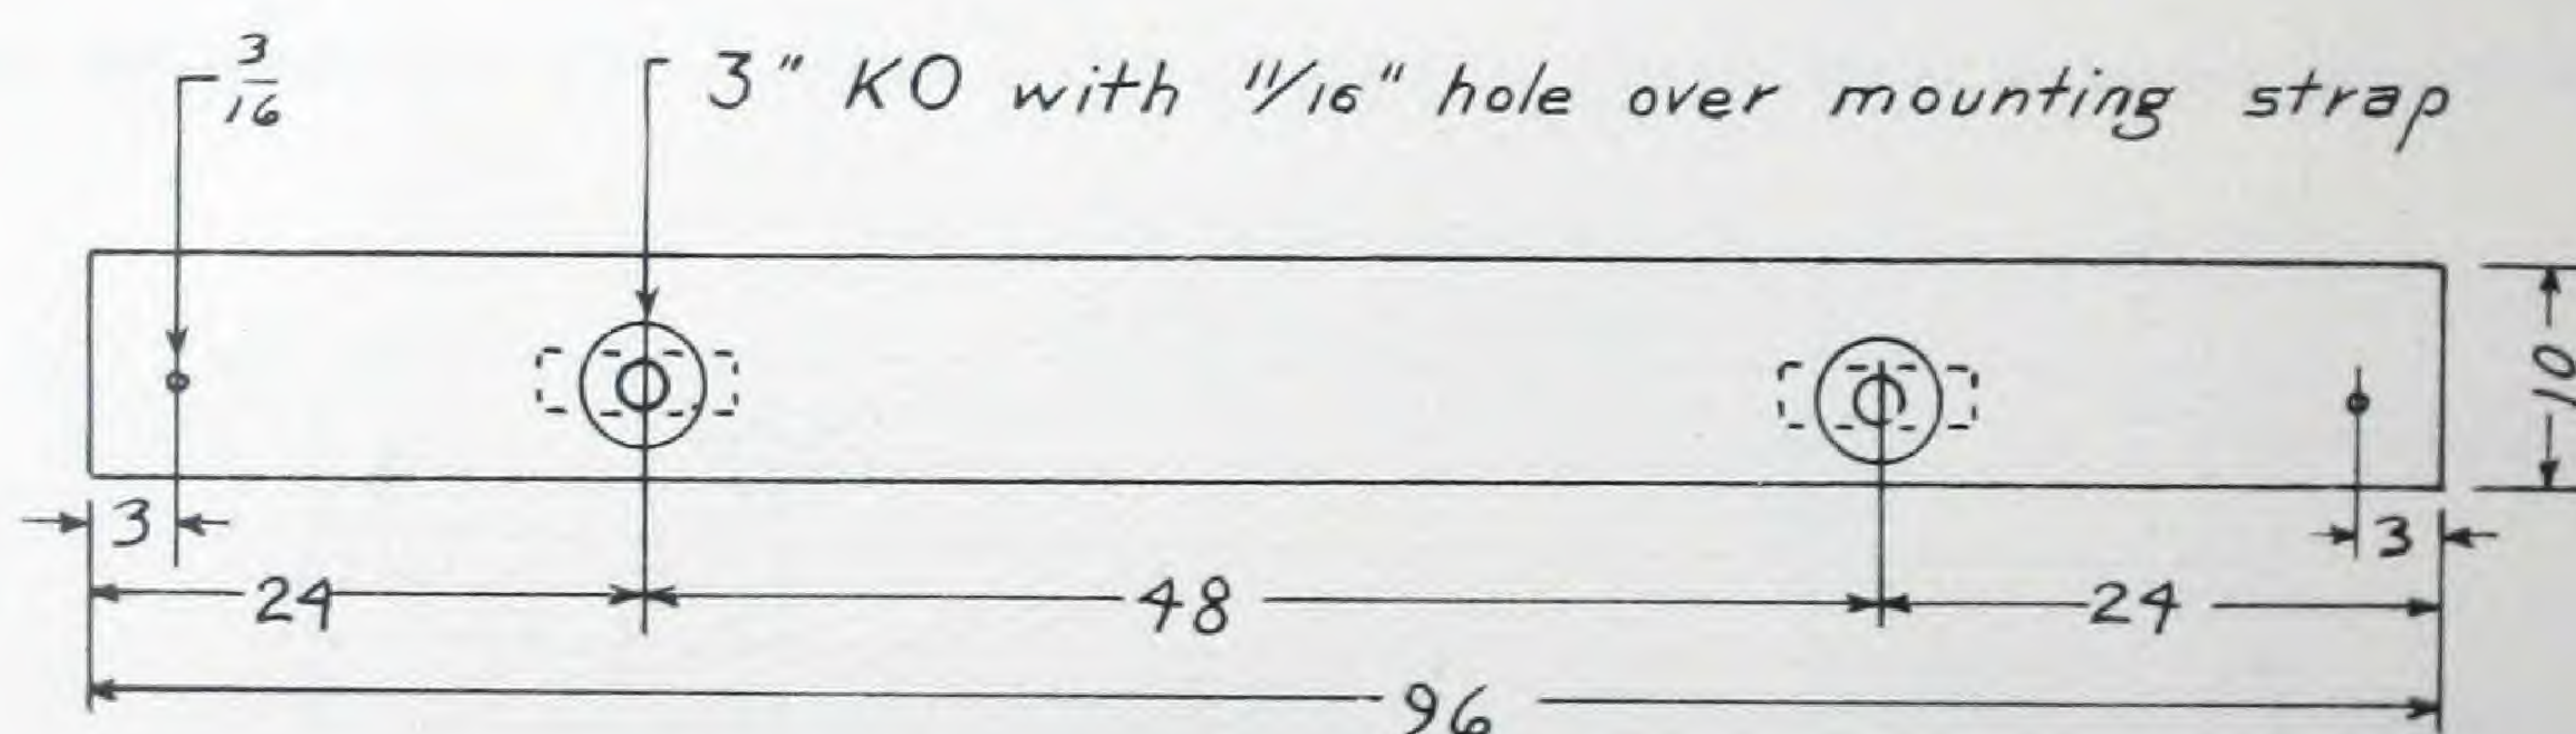 3/16
3" KO with 11/16" hole over mounting strap
10
3
3
24
48
24
96